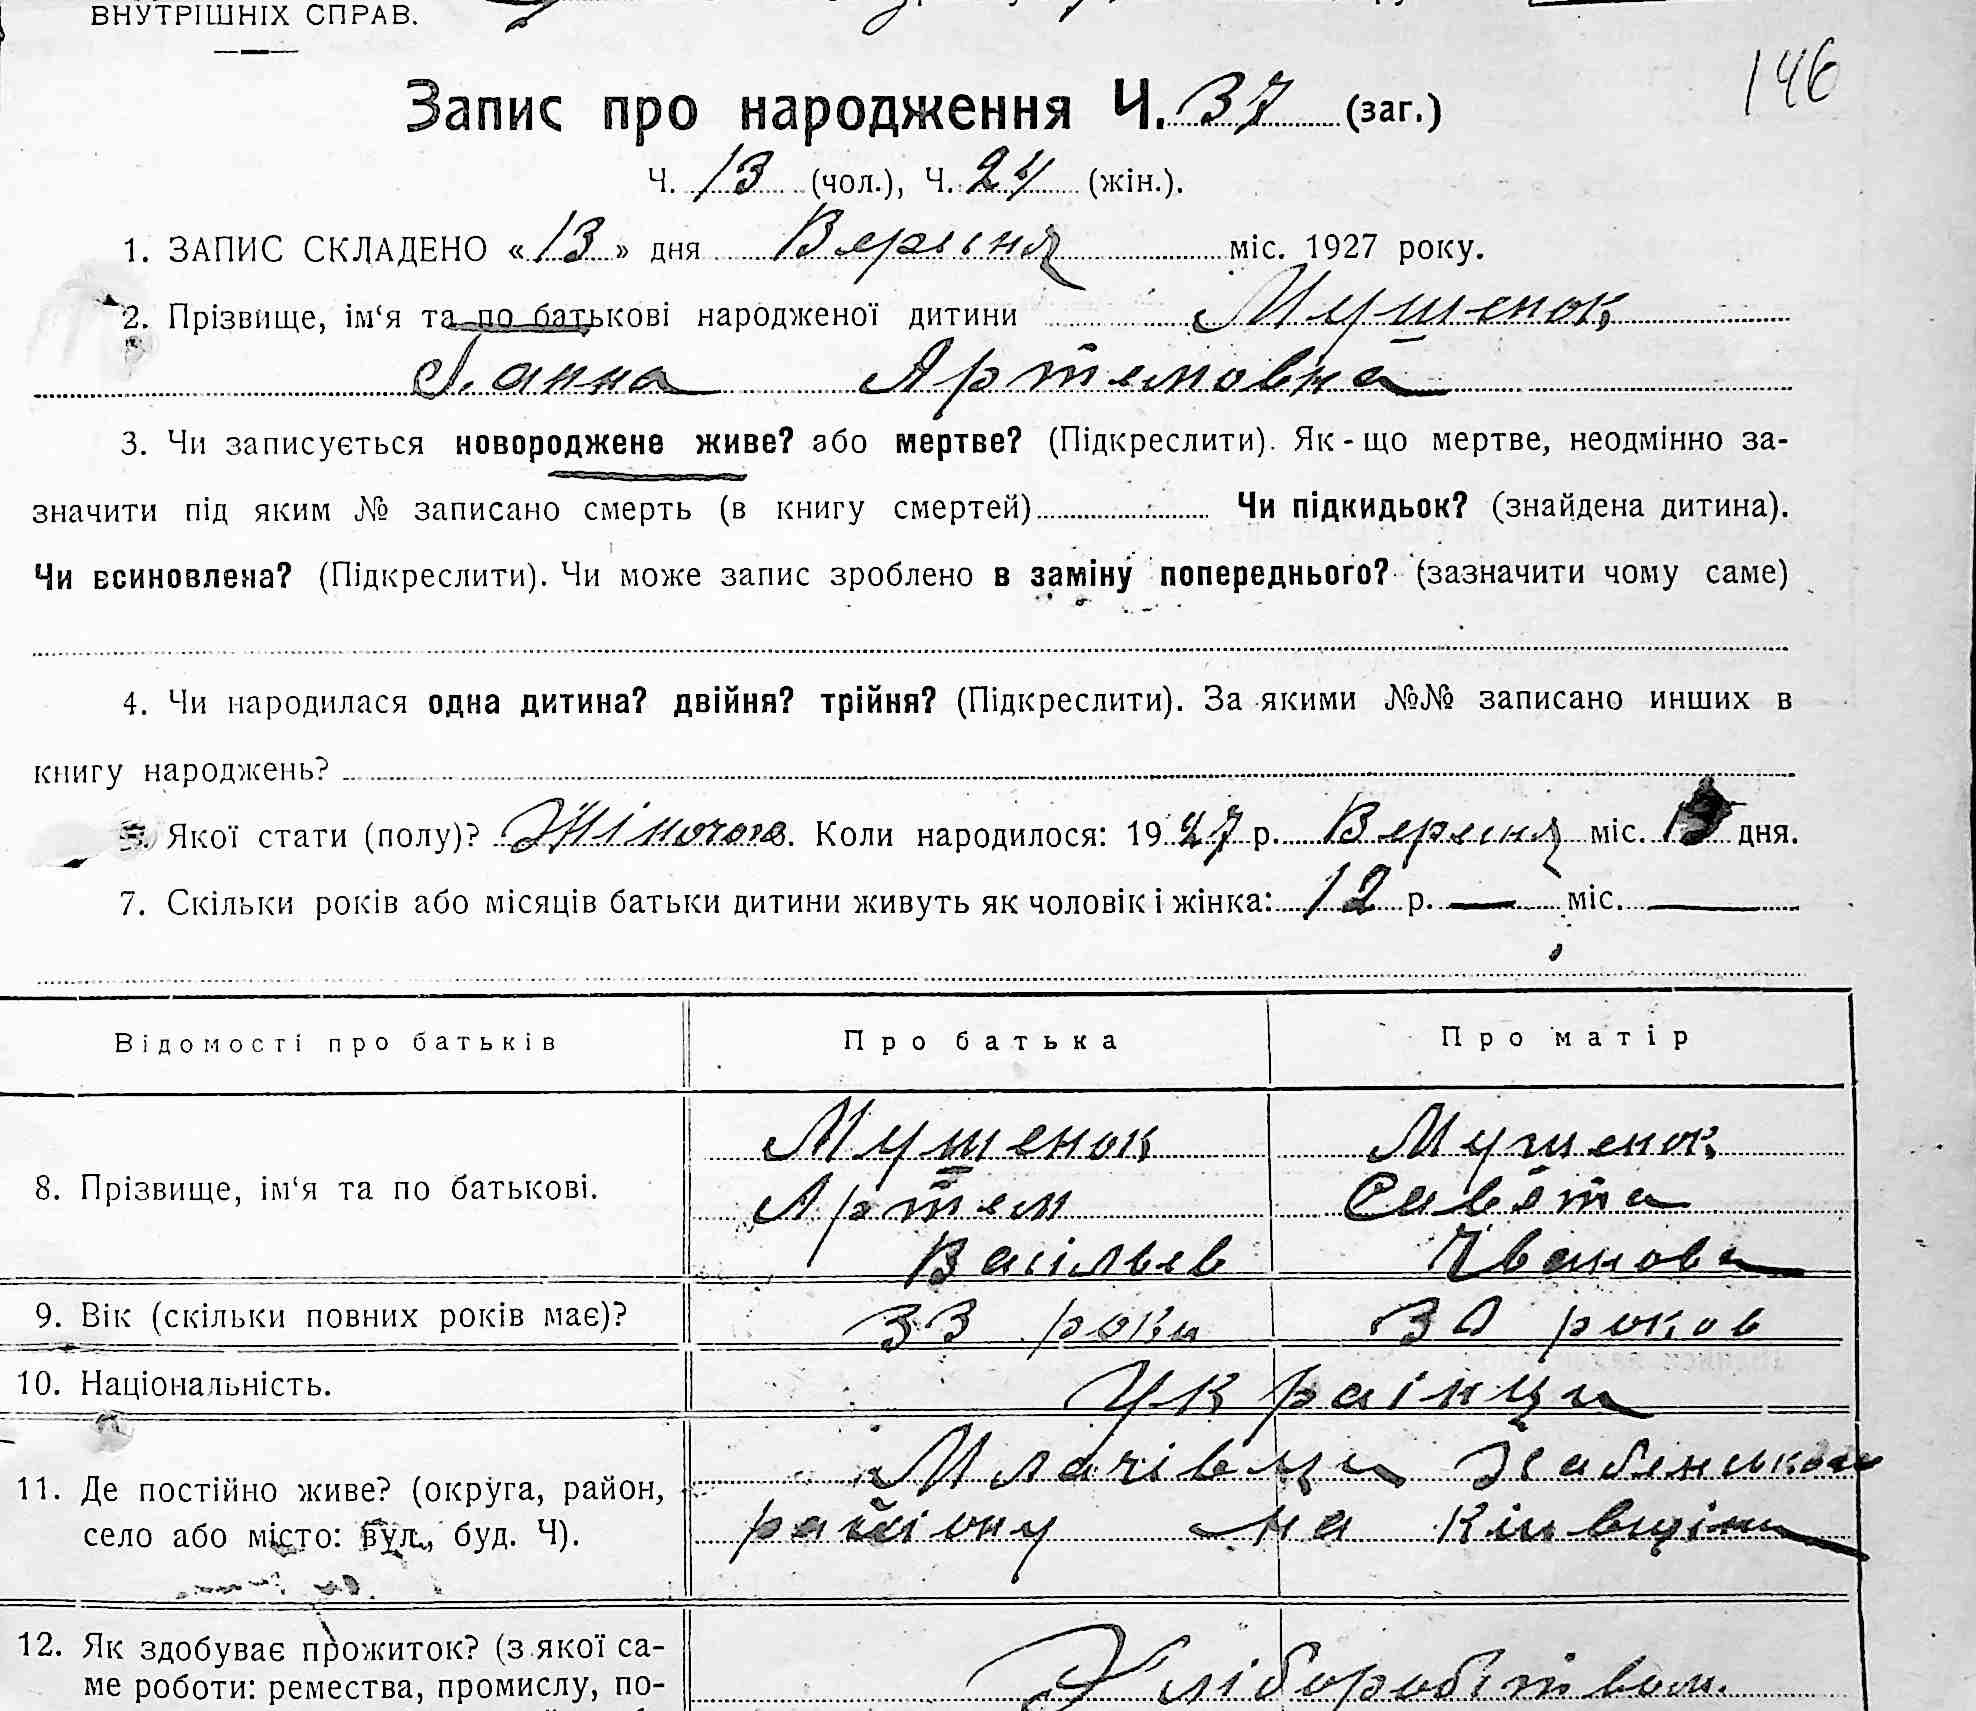 ВНУТРІШНІХ СПРАВ.
146
Запис про народження Ч. 37 (заг.)
Ч. 13 (чол.), Ч. 24 (жін.).
1. ЗАПИС СКЛАДЕНО «13» дня Вересня міс. 1927 року.
2. Прізвище, ім‘я та по батькові народженої дитини Мушенок
Ганна Артемовна
3. Чи записується новороджене живе? або мертве? (Підкреслити). Як-що мертве, неодмінно за-
значити під яким № записано смерть (в книгу смертей) Чи підкидьок? (знайдена дитина).
Чи всиновлена? (Підкреслити). Чи може запис зроблено в заміну попереднього? (зазначити чому саме)
4. Чи народилася одна дитина? двійня? трійня? (Підкреслити). За якими №№ записано инших в
книгу народжень?
5. Якої стати (полу)? Жіночого. Коли народилося: 1927 р. Вересня міс. дня.
7. Скільки років або місяців батьки дитини живуть як чоловік і жінка: 12 р. — міс. —
Відомості про батьків Про батька Про матір
8. Прізвище, ім‘я та по батькові. Мушенок Мушенок
Артем
Васільев Іванова
9. Вік (скільки повних років має)? 33 роки 30 роков
10. Національність. Украінци
11. Де постійно живе? (округа, район,
село або місто: вул., буд. Ч).
району на Київщіни
12. Як здобуває прожиток? (з якої са-
ме роботи: ремества, промислу, по- Хліборобством.